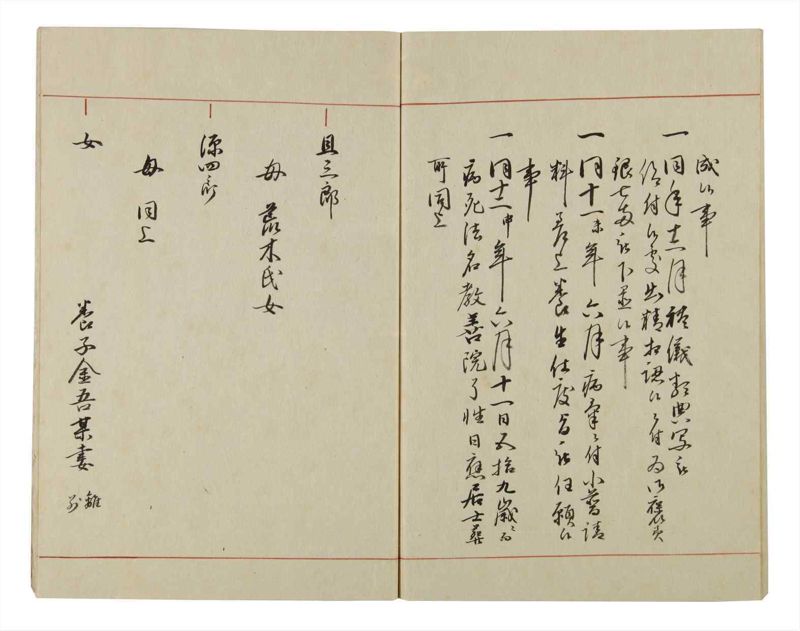 成候事
一同年十二月礼儀類典写被
仰付候処出精相勤候ニ付為御褒美
銀七両被下置候事
一同十一未年六月病気ニ付小普請
料差上養生仕度旨被任願候
事
一同十二申年六月十一日五拾九歳ニ而
病死法名教善院了性日應居士葬
所同上
且三郎
母 荒木氏女
源四郎
母 同上
女
養子金吾某妻
離別